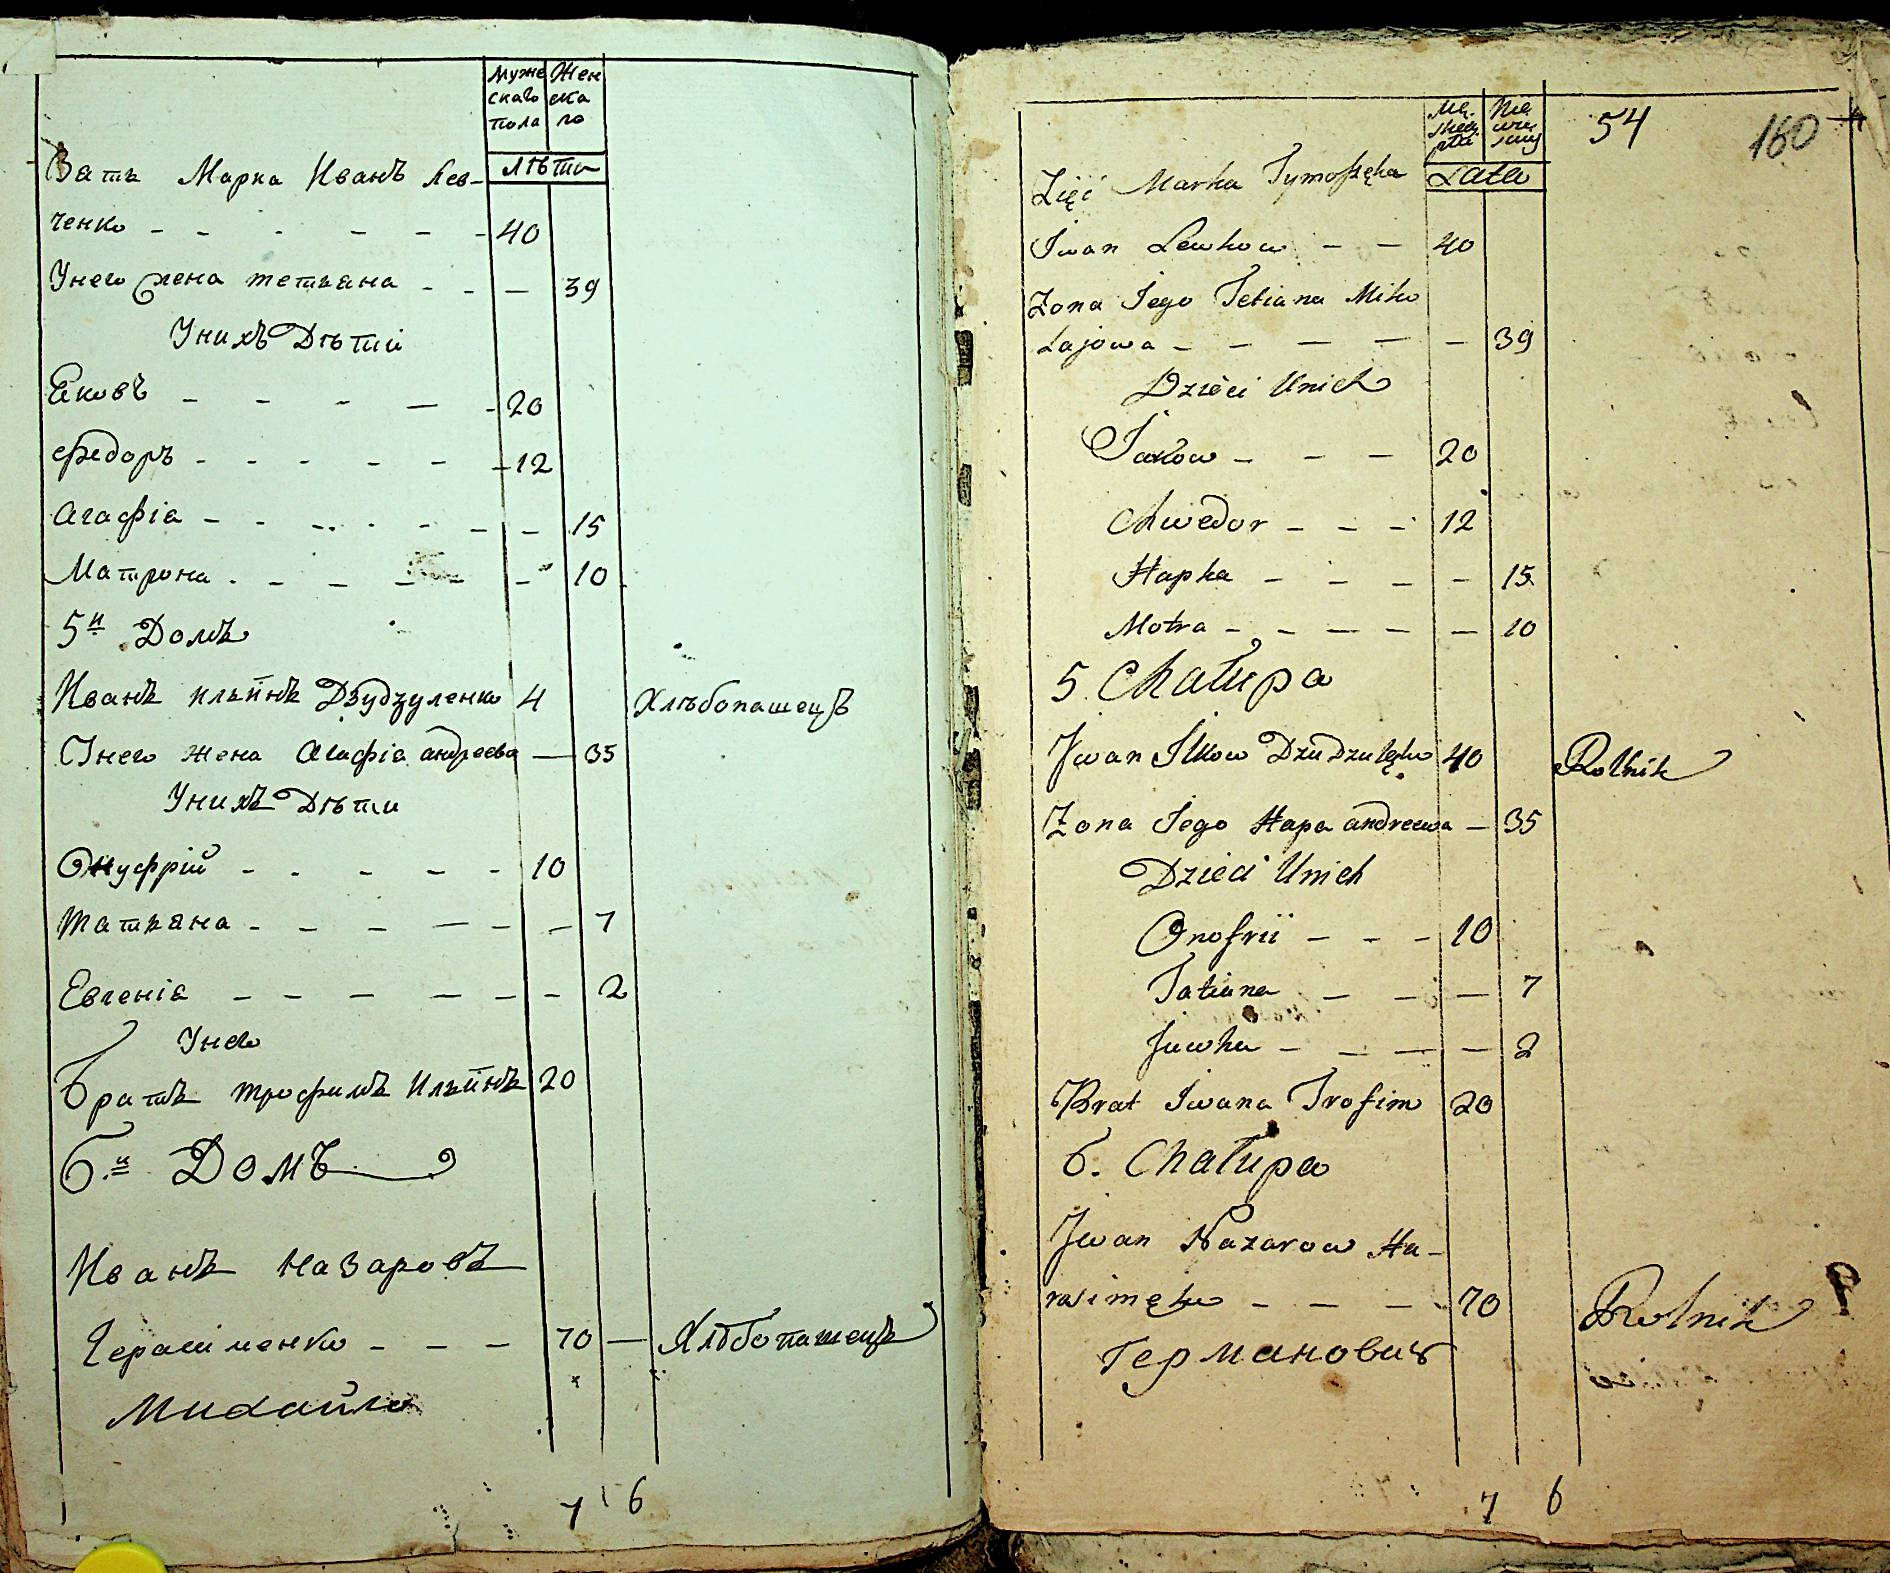 Муже
скаго
пола
Жен
ска
го
лѣты
Зать Марка Иванъ Лев-
ченко - - - - - - 40
Унего жена тетяна - - - 39
Унихъ Дѣтии
Яковъ - - - - - 20
Федоръ - - - - - - 12
Агафія - - - - - - - 15
Матрона - - - - - - 10
5й Домъ
Иванъ ильинъ Дзудзуленко 4 Хлѣбопашецъ
Унего жена Агафія андреева - 35
Унихъ Дѣти
Онуфрій - - - - - 10
Татяна - - - - - - 7
Евгенія - - - - - - 2
Унего
братъ трофимъ Ильинъ 20
6й Домъ
Иванъ Назаровъ
Герасименко - - - 70 - Хлѣбопашецъ
Михайло
7 6
54 160
Mę.
skiej
płci
Nie
wie
sciej
Lata
Zięć Marka Tymofięka
Iwan Lewkow - - 40
Zona Iego Tetiana Miko
łajowa - - - - - 39
Dzieci Unich
Iakow - - - 20
Chwedor - - - 12
Hapka - - - - - 15
Motra - - - - - 10
5. Chałupa
Iwan Ilkow Dzudzulęko 40 Rolnik
Zona Iego Hapa andreewa - 35
Dzieci Unich
Onofrii - - - 10
Tatiana - - - - 7
Juwka - - - - - 2
Brat Iwana Trofim 20
6. Chałupa
Iwan Nazarow Ha-
rasimęko - - - - 70 Rolnik
Германович
7 6